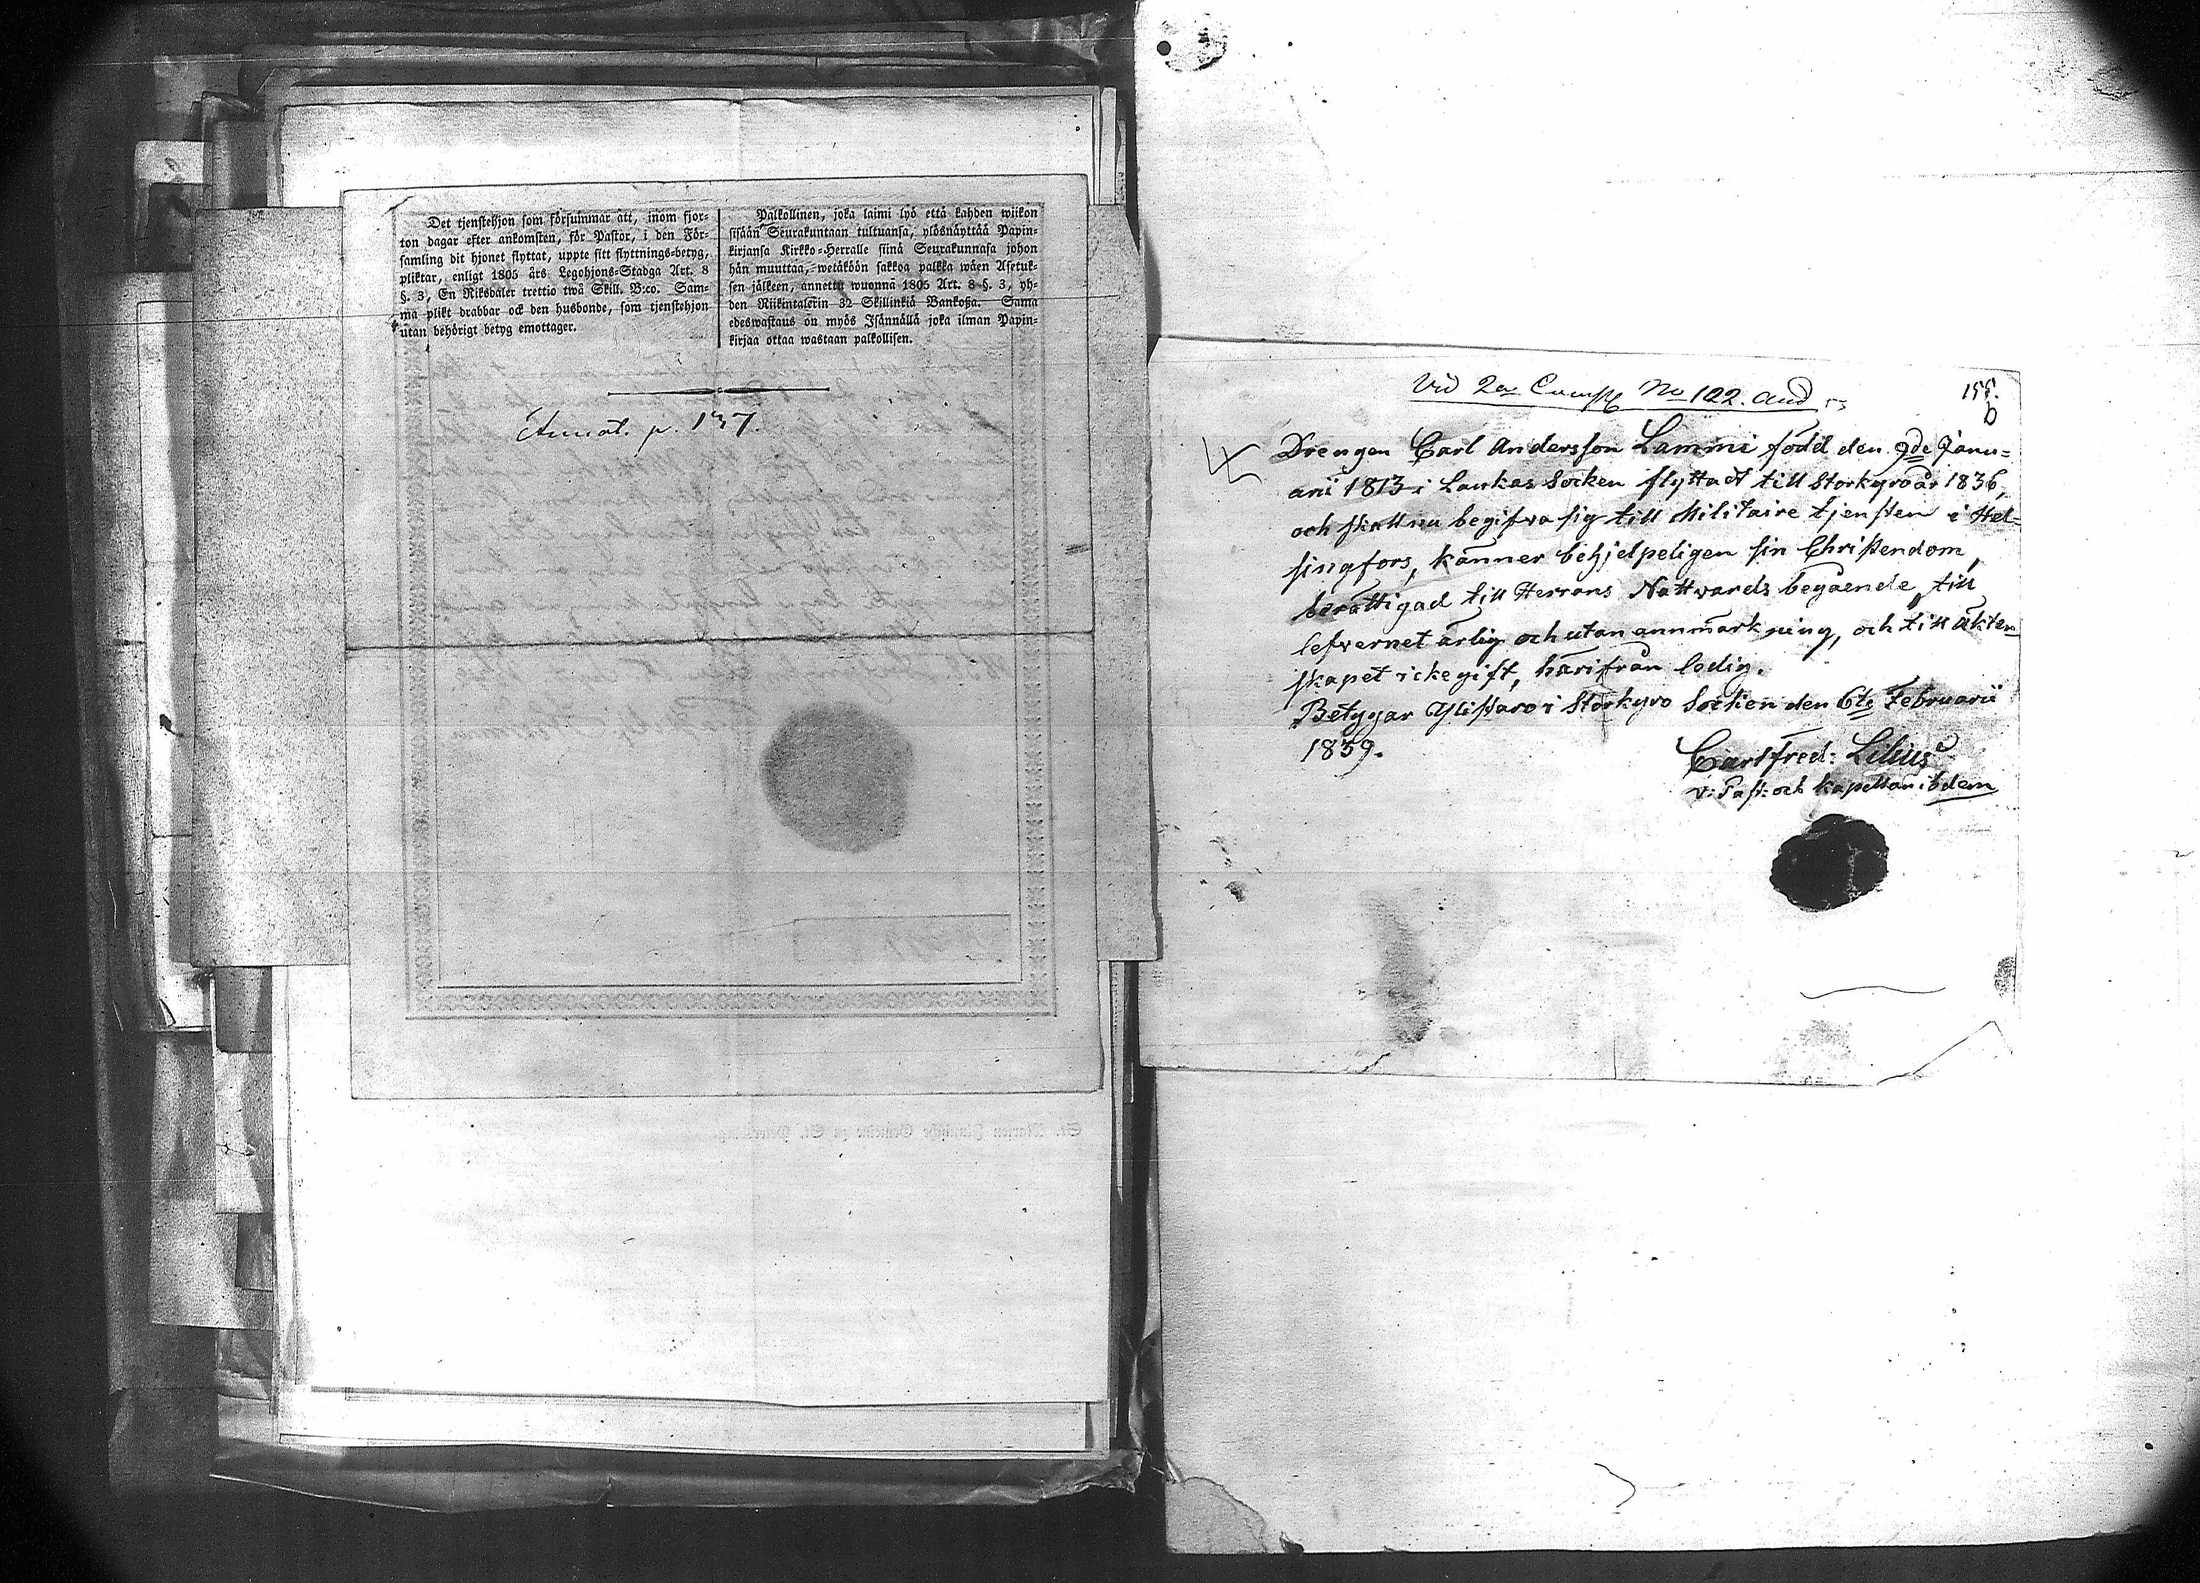 Det tjenstehjon som försummar att, inom fjor-
ton dagar efter ankomsten, för Pastor, i den För-
samling dit hjonet flyttat, uppte sitt flyttnings-betyg,
pliktar, enligt 1805 års Legohjons-Stadga Art. 8
§. 3, En Riksdaler trettio två Skill. B:co. Sam-
ma plikt drabbar ock den husbonde, som tjenstehjon
utan behörigt betyg emottager.
Palkollinen, joka laimi lyö että kahden wiikon
sisään Seurakuntaan tultuansa, ylösnäyttää Papin-
kirjansa Kirkko-Herralle siinä Seurakunnasa johon
hän muuttaa, wetäköön sakkoa palkka wäen Asetuk-
sen jälkeen, annettu wuonna 1805 Art. 8 §. 3, yh-
den Riikintalerin 32 Skillinkiä Bankoßa. Sama
edeswastaus on myös Isännällä joka ilman Papin-
kirjaa ottaa wastaan palkollisen.
Annot. p. 137.
Vid 2a Comp. No 122. and
155.
b
Drengen Carl Andersson Lammi född den 9de Janu=
arii 1813 i Laukas Socken flyttadt till Storkyro år 1836,
och skall nu begifva sig till Militaire tjensten i Hel=
singfors, känner behjelpeligen sin Christendom,
berättigad till Herrans Nattvards begående, till
lefvernet ärlig och utan annmärkning, och till äkten
skapet icke gift, härifrån ledig.
Betygar Ylistaro i Storkyro Socken den 6te Februarii
1839.
Carl fred: Lilius
v: Past: och kapellan ibdem